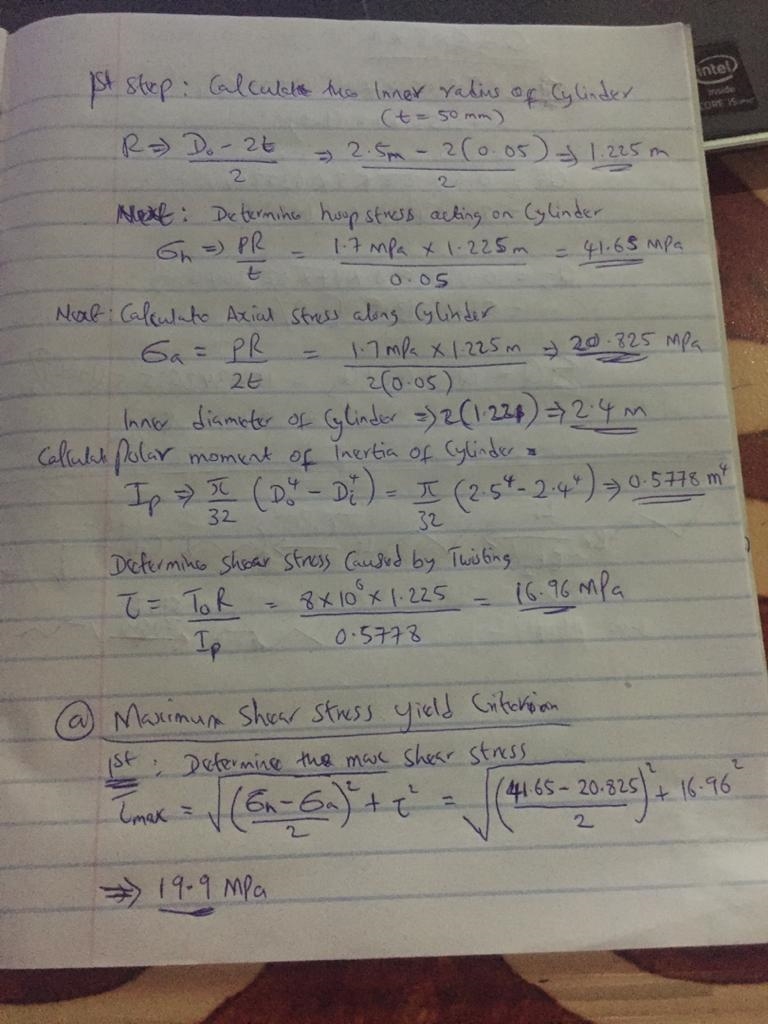 1st step: Calculate the Inner radius of Cylinder
(t = 50 mm)
R ⇒ D₀ - 2t / 2 ⇒ 2.5m - 2(0.05) / 2 ⇒ 1.225 m
Next: Determine hoop stress acting on Cylinder
σh ⇒ PR / t = 1.7 mpa × 1.225m / 0.05 = 41.65 MPa
Next: Calculate Axial stress along Cylinder
σa = PR / 2t = 1.7 mpa × 1.225 m / 2(0.05) ⇒ 20.825 MPa
Inner diameter of Cylinder ⇒ 2(1.221) ⇒ 2.4 m
Calculate Polar moment of Inertia of Cylinder
Ip ⇒ π/32 (D₀⁴ - Di⁴) = π/32 (2.5⁴ - 2.4⁴) ⇒ 0.5778 m⁴
Determine shear stress Caused by Twisting
τ = T₀R / Ip = 8×10⁶ × 1.225 / 0.5778 = 16.96 MPa
(a) Maximum Shear Stress Yield Criterion
1st: Determine the max shear stress
τmax = √((σh - σa / 2)² + τ²) = √((41.65 - 20.825 / 2)² + 16.96²)
⇒ 19.9 MPa
intel
inside
CORE i5